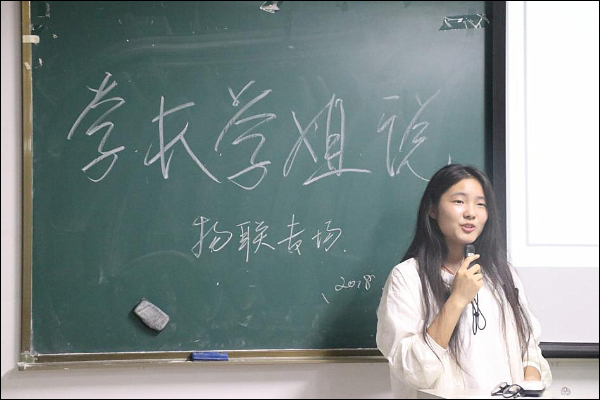 学长学姐说
物联专场
2018